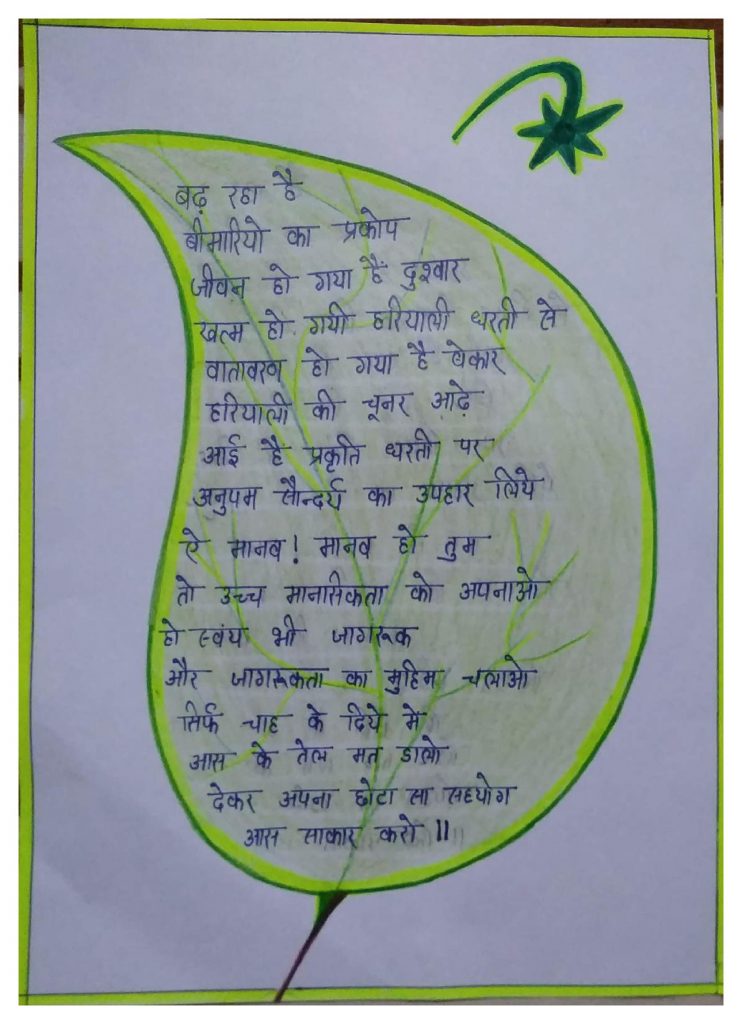 बढ़ रहा है
बीमारियो का प्रकोप
जीवन हो गया हैं दुश्वार
खत्म हो गयी हरियाली धरती से
वातावरण हो गया है बेकार
हरियाली की चूनर ओढ़े
आई है प्रकृति धरती पर
अनुपम सौन्दर्य का उपहार लिये
ऐ मानव! मानव हो तुम
तो उच्च मानसिकता को अपनाओ
हो स्वंय भी जागरूक
और जागरूकता का मुहिम चलाओ
सिर्फ चाह के दिये मे
आस के तेल मत डालो
देकर अपना छोटा सा सहयोग
आस साकार करो ॥